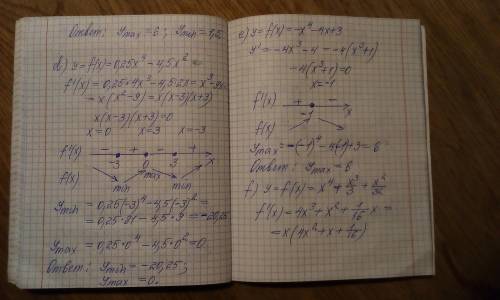 Ответ: y max = 6; y min = 5,25
d) y = f(x) = 0,25x⁴ - 4,5x² =
f'(x) = 0,25·4x³ - 4,5·2x = x³ - 9x =
= x(x² - 9) = x(x-3)(x+3)
x(x-3)(x+3) = 0
x = 0 x = 3 x = -3
f'(x) - + - + x
-3 0 3
f(x) min max min
y min = 0,25(-3)⁴ - 4,5(-3)² =
= 0,25·81 - 4,5·9 = -20,25
y max = 0,25·0⁴ - 4,5·0² = 0.
Ответ: y min = -20,25;
y max = 0.
e) y = f(x) = -x⁴ - 4x + 3
y' = -4x³ - 4 = -4(x³+1)
-4(x³+1) = 0
x = -1
f'(x) + - x
-1
f(x)
y max = -(-1)⁴ - 4(-1) + 3 = 6
Ответ: y max = 6
f) y = f(x) = x⁴ + x³/3 + x²/32
f'(x) = 4x³ + x² + 1/16 x =
= x(4x² + x + 1/16)